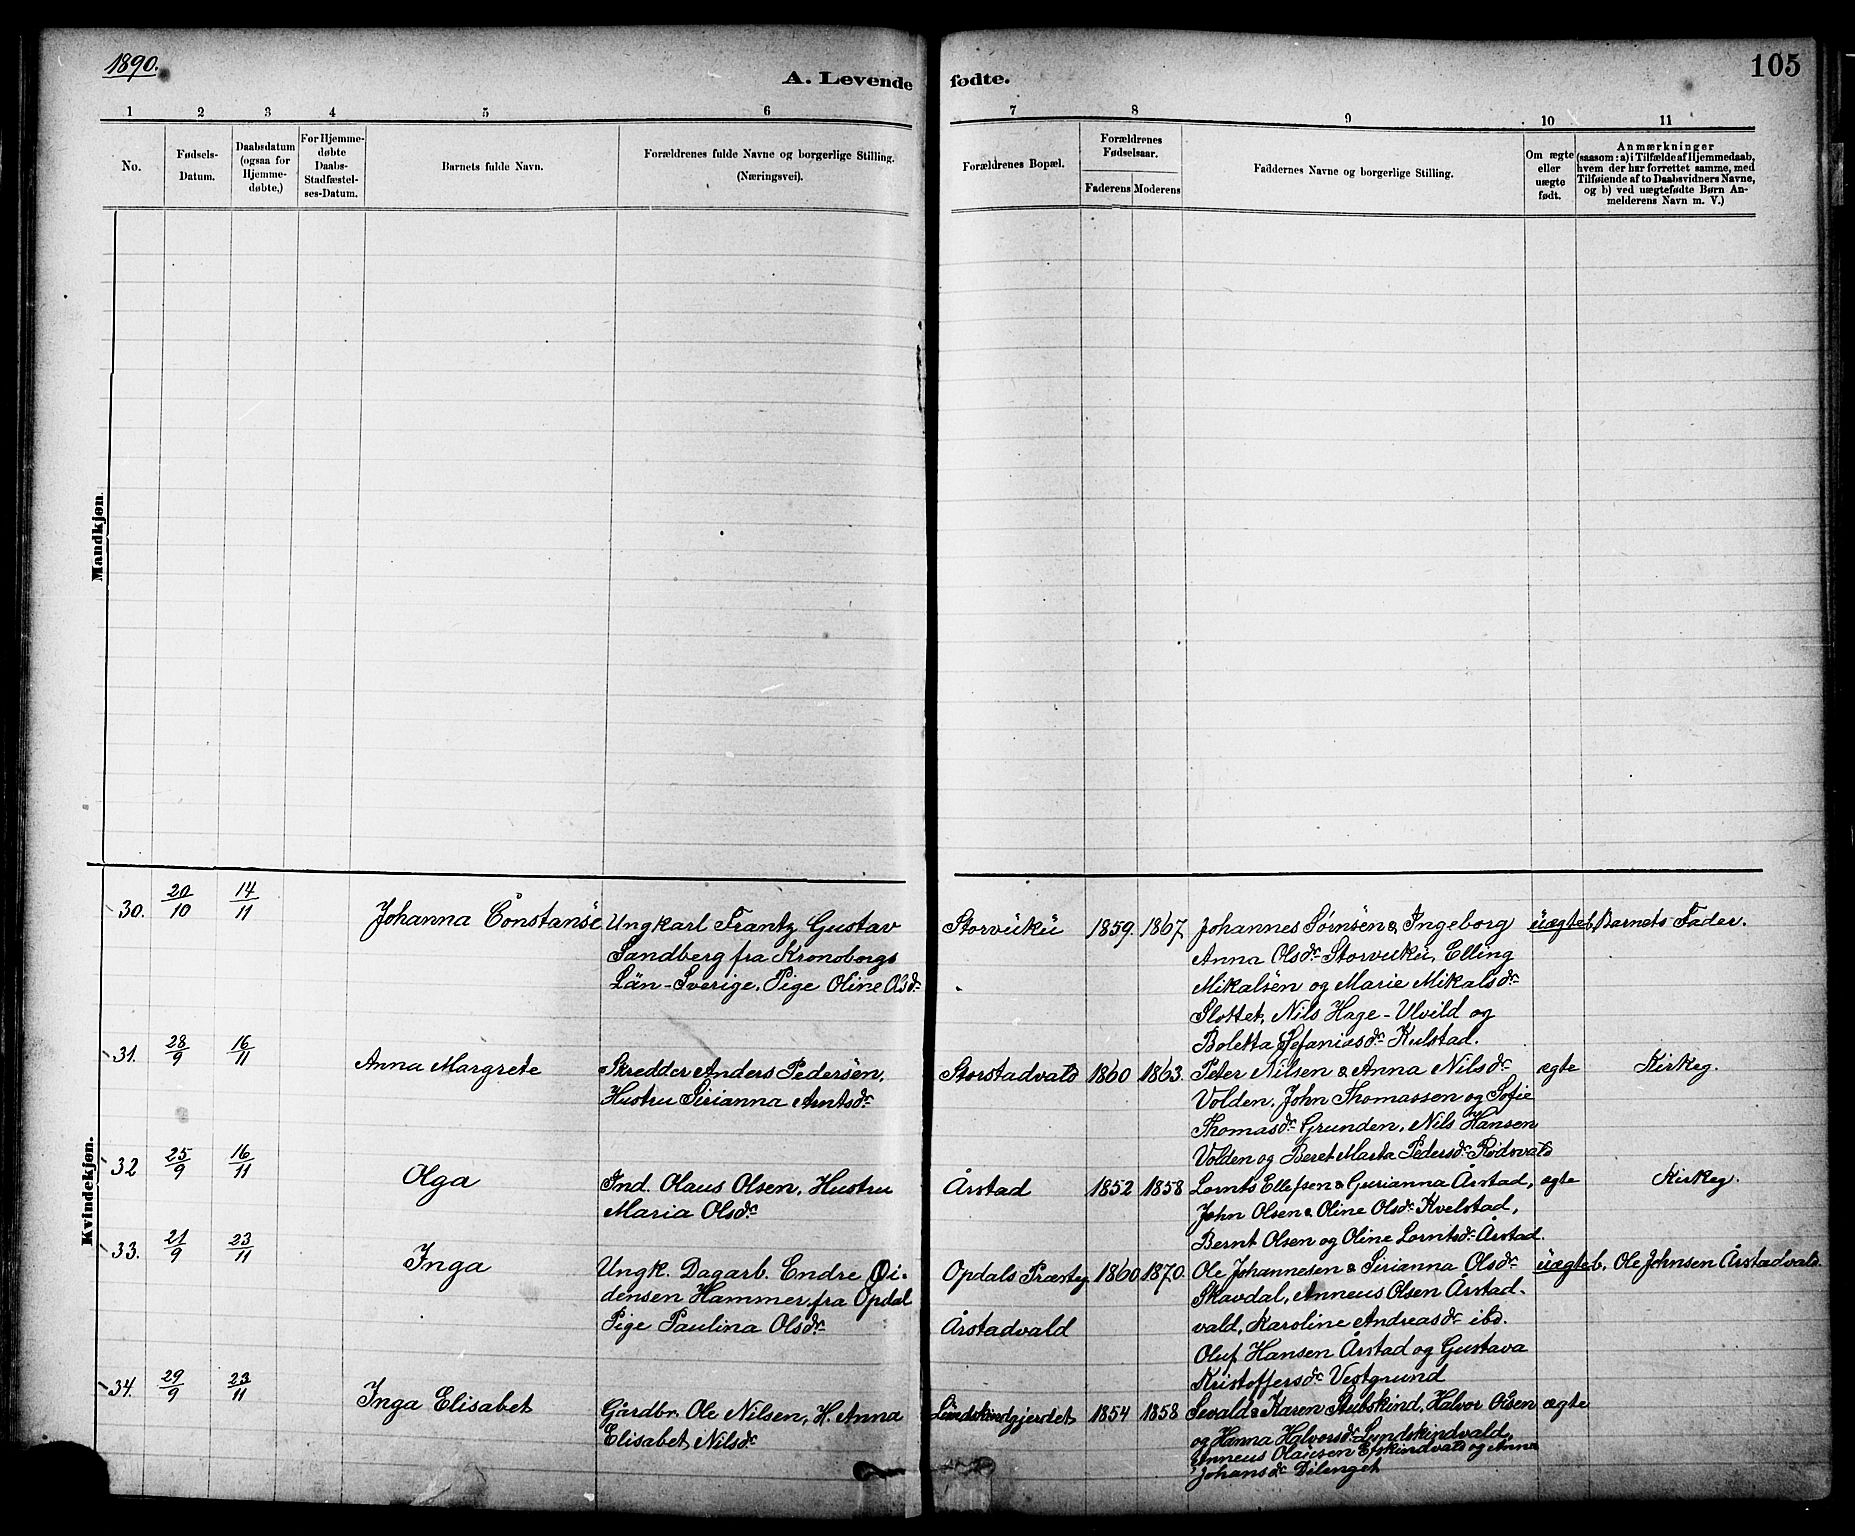 1890.
A. Levende fødte.
105
1 2 3 4 5 6 7 8 9 10 11
No.
Fødsels-
Datum.
Daabsdatum
(ogsaa for
Hjemme-
døbte,)
For Hjemme-
døbte
Daabs-
Stadfæstel-
ses-Datum.
Barnets fulde Navn.
Forældrenes fulde Navne og borgerlige Stilling.
(Næringsvei).
Forældrenes Bopæl.
Forældrenes
Fødselsaar.
Faderens Moderens
Faddernes Navne og borgerlige Stilling.
Om ægte
eller
uægte
født.
Anmærkninger
(saasom: a) i Tilfælde af Hjemmedaab,
hvem der har forrettet samme, med
Tilføiende af to Daabsvidners Navne,
og b) ved uægtefødte Børn An-
melderens Navn m. V.)
Mandkjøn.
Kvindekjøn.
30. 20/10 14/11
Johanna Constanse
Ungkarl Frantz Gustav
Sandberg fra Kronoborgs
Län-Sverige, Pige Oline Olsdr
Storvuku 1859. 1867.
Johannes Sørnsen & Ingeborg
Anna Olsdr Storvuku, Elling
Mikalsen og Marie Mikalsdr
Slottet, Nils Hage-Ulvild og
Boletta Sefaniasdr Kulstad.
uægteb. Barnets Fader.
31. 28/9 16/11
Anna Margrete
Skredder Anders Pedersen,
Hustru Sirianna Arntsdr
Storstadvald 1860 1863.
Peter Nilsen & Anna Nilsdr
Volden, John Thomassen og Sofie
Thomasdr Grunden, Nils Hansen
Volden og Beret Marta Pedersdr Rødsvald
ægte Kirkeg.
32 25/9 16/11
Olga
Ind. Olaus Olsen, Hustru
Maria Olsdr
Årstad 1852 1858
Lornts Ellefsen & Gurianna Årstad,
John Olsen & Oline Olsdr Kvelstad,
Bernt Olsen og Oline Lorntsdr Årstad.
ægte Kirkeg.
33. 21/9 23/11
Inga
Ungk. Dagarb. Endre Øi-
densen Hammer fra Opdal
Pige Paulina Olsdr
Opdals Præsteg 1860 1870.
Årstadvald
Ole Johannesen & Sirianna Olsdr
Skavdal, Anneus Olsen Årstad-
vald, Karoline Andreasdr ibd.
Oluf Hansen Årstad og Gustava
Kristoffersdr Vestgrund
uægteb. Ole Johnsen Årstadvald.
34. 29/9 23/11
Inga Elisabet
Gårdbr. Ole Nilsen, H. Anna
Elisabet Nilsdr
Lundskindgjerdet 1854 1858
Sevald & Karen Stubskind, Halvor Olsen
og Hanna Halvorsdr Lundskindvald,
Anneus Olausen Efskindvald og Anna
Johansdr Dilenget
ægte